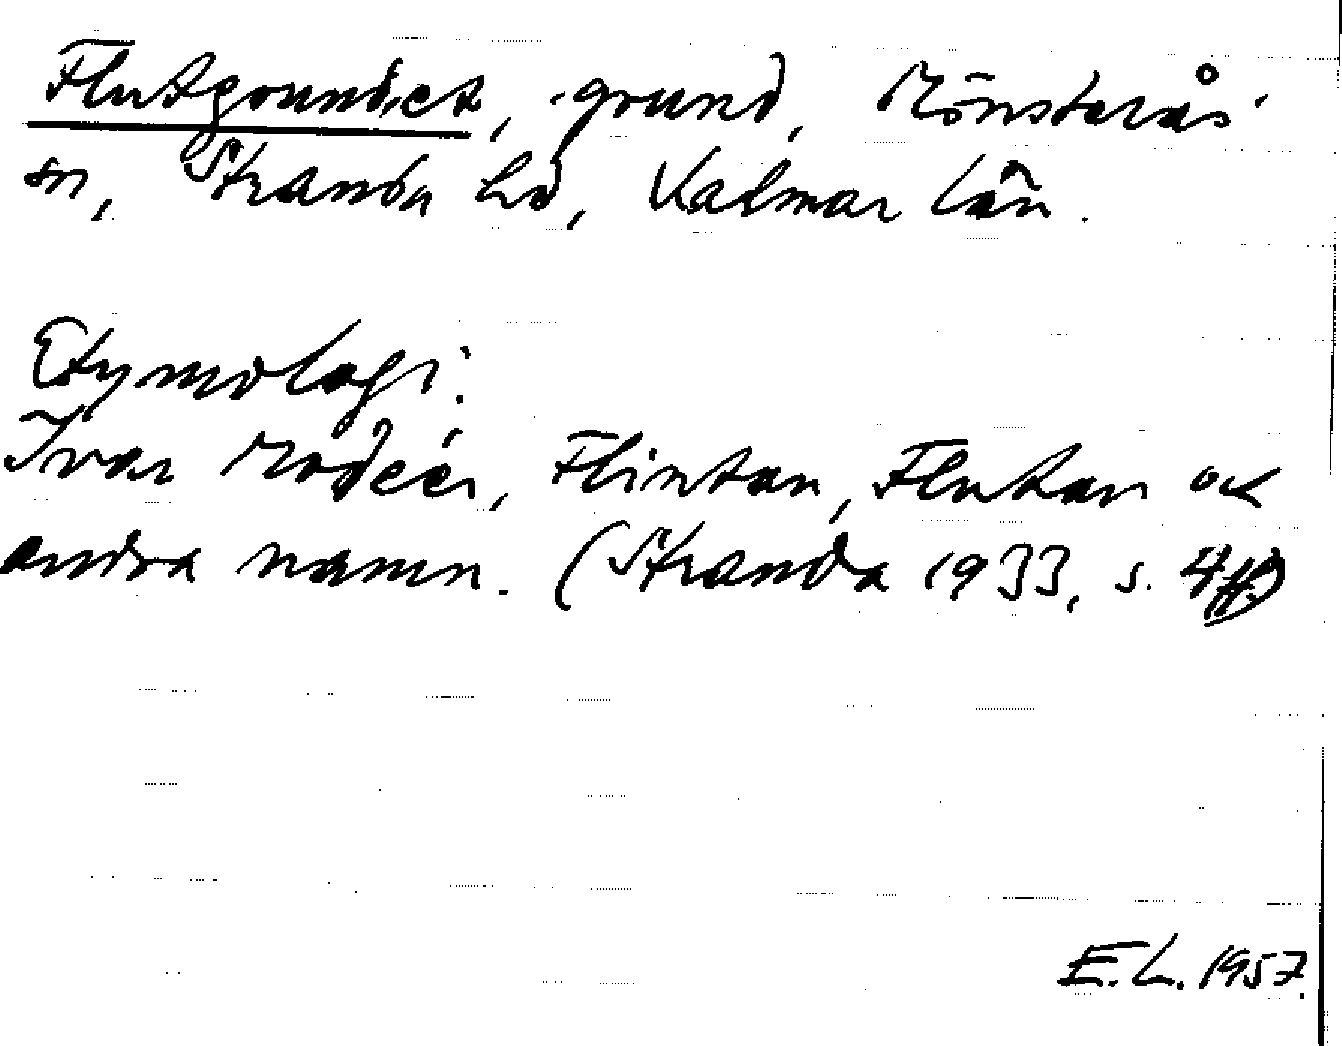 Flutgrundet, grund, Mönsterås
sn, Stranda hd, Kalmar län.
Etymologi:
Ivar Modéer, Flintan, Flutan och
andra namn. (Stranda 1933, s. 4ff.)
E.L. 1957.